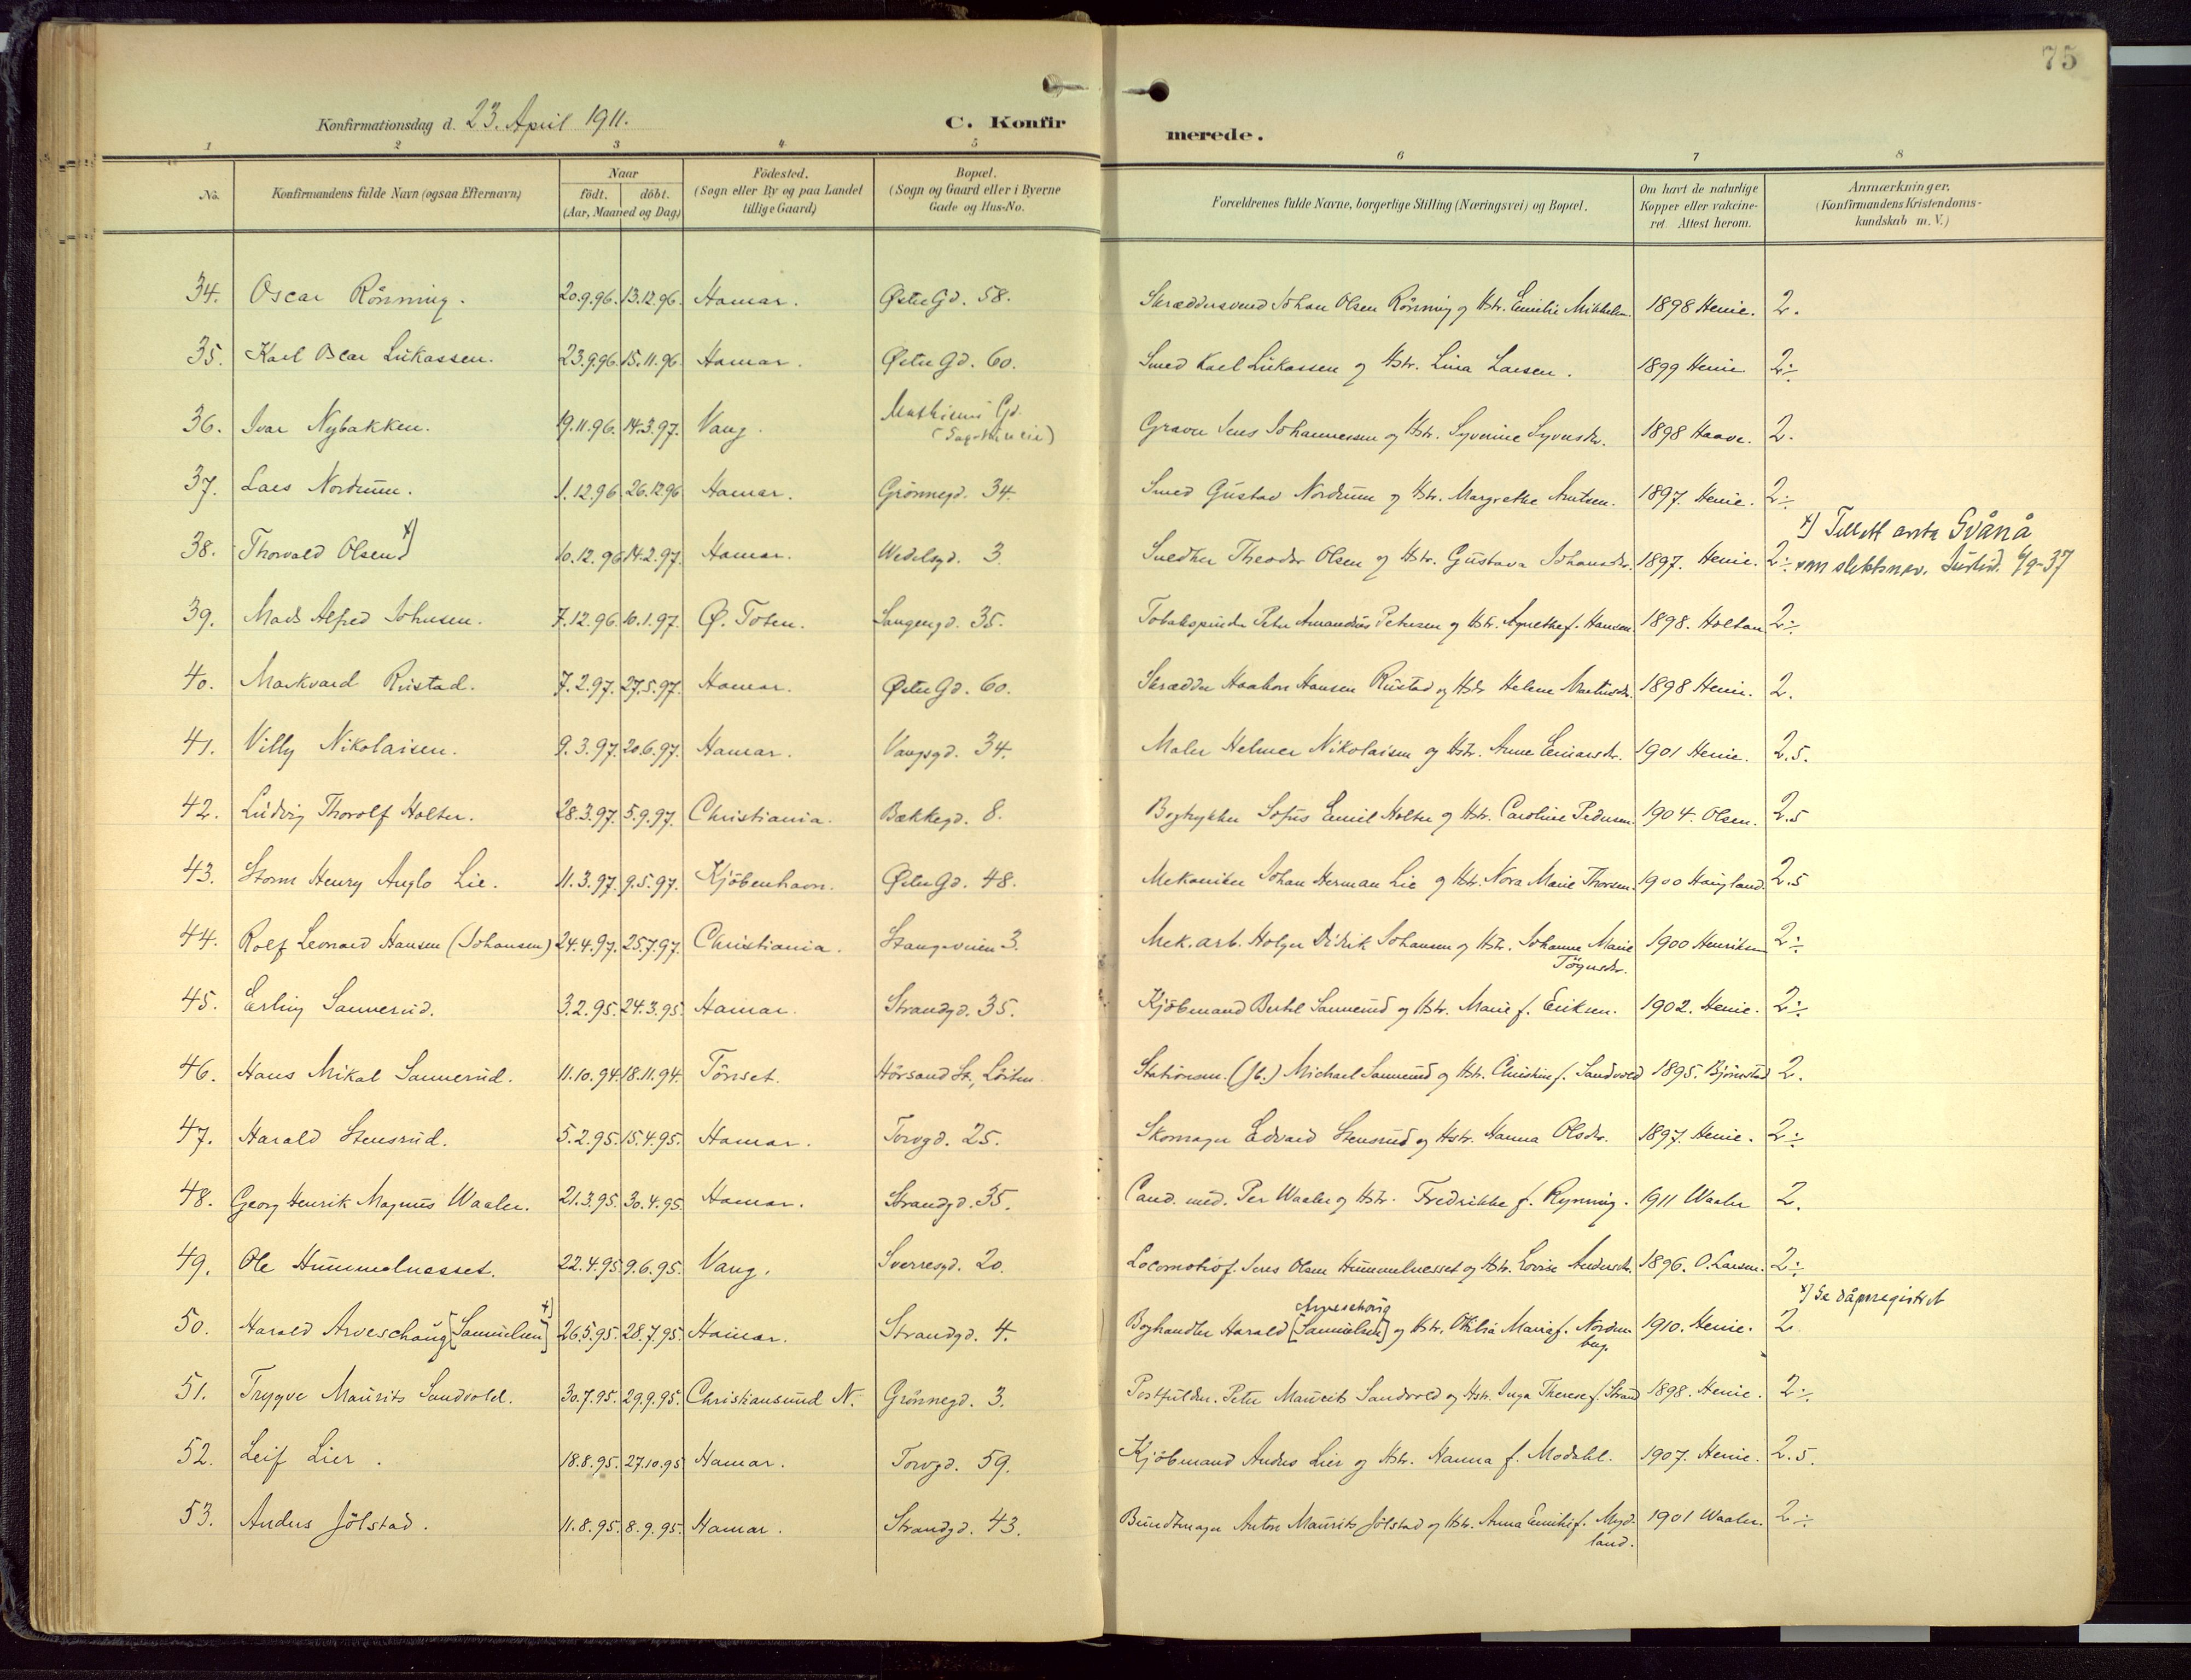 75
Konfirmationsdag d. 23. April 1911. C. Konfirmerede.
1 2 3 4 5 6 7 8
No. Konfirmandens fulde Navn (ogsaa Efternavn) Naar födt. döbt. (Aar, Maaned og Dag) Födested. (Sogn eller By og paa Landet tillige Gaard) Bopæl. (Sogn og Gaard eller i Byerne Gade og Hus-No. Forældrenes fulde Navne, borgerlige Stilling (Næringsvei) og Bopæl. Om havt de naturlige Kopper eller vakcineret. Attest herom. Anmærkninger. (Konfirmandens Kristendomskundskab m. V.)
34. Oscar Rönning. 20.9.96. 13.12.96. Hamar. Østre Gd. 58. Skræddersvend Johan Olsen Rönning og Hstr. Emilie Mikkelsn. 1898 Henie. 2.
35. Karl Oscar Lukassen. 23.9.96 15.11.96. Hamar. Østre Gd. 60. Smed Karl Lukassen og Hstr. Lina Larsen. 1899 Henie 2÷
36. Ivar Nybakken. 19.11.96. 14.3.97. Vang. Gd. Graver Jens Johannessen og Hstr. Syverine Syversdr. 1898 Haave. 2.
37. Lars Nordrum. 1.12.96. 26.12.96 Hamar. Grönnegd. 34. Smed Gustav Nordrum og Hstr. Margrethe Knutsen. 1897. Henie. 2÷
38. Thorvald Olsen x) 10.12.96 14.2.97. Hamar. Wedelsgd. 3. Snedker Theodor Olsen og Hstr. Gustava Johansdr. 1897. Henie. 2÷ x) Tillatt anta Svånå som slektsnav. Justisd. 6/9-37
39. Mads Alfred Johnsen. 7.12.96 10.1.97. Ø. Toten. Vangengd. 35. Tobakspinder Peter Amandus Petersen og Hstr. Agnethe f. Hansen. 1898. Holtan 2÷
40. Markvard Rustad. 7.2.97. 27.5.97. Hamar. Østre Gd. 60. Skrædder Haakon Hansen Rustad og Hstr. Helene Martinsdr. 1898 Henie. 2.
41. Villy Nikolaisen. 9.3.97. 20.6.97. Hamar. Vangsgd. 34. Maler Helmer Nikolaisen og Hstr. Anne Einarsdr. 1901 Henie. 2.5.
42. Ludvig Thorolf Holter. 28.3.97. 5.9.97. Christiania. Bækkegd. 8. Bogtrykker Sofus Emil Holter og Hstr. Caroline Pedersen. 1904. Olsen. 2.5
43. Storm Henry Anglo Lie. 11.3.97. 9.5.97. Kjöbenhavn. Østre Gd. 48. Mekaniker Johan Herman Lie og Hstr. Nora Marie Thorsen. 1900 Haugland. 2.5
44. Rolf Leonard Hansen (Johansen) 24.4.97. 25.7.97. Christiania. Stangeveien 3. Mek. arb. Holger Didrik Johansen og Hstr. Johanne Marie Tögersdr. 1900 Henriksen 2÷
45. Erling Sannerud. 3.2.95. 24.3.95. Hamar. Strandgd. 35. Kjöbmand Bertel Sannerud og Hstr. Marie f. Eriksen. 1902. Henie. 2÷
46. Hans Mikal Sannerud. 11.10.94. 18.11.94. Tönset. Hörsand St., Löiten. Stationsm. (fb.) Michael Sannerud og Hstr. Christine f. Sandvold 1895. Björnstad 2.
47. Harald Stensrud. 5.2.95. 15.4.95. Hamar. Torvgd. 25. Skomager Edvard Stensrud og Hstr. Hanna Olsdr. 1897. Henie. 2÷
48. Georg Henrik Magnus Waaler. 21.3.95. 30.4.95. Hamar. Strandgd. 35. Cand. med. Per Waaler og Hstr. Fredrikke f. Rynning. 1911 Waaler 2.
49. Ole Hummelnesset. 22.4.95 9.6.95. Vang. Sverresgd. 20. Locomotivf. Jens Olsen Hummelnesset og Hstr. Lovise Andersdr. 1896. O. Larsen. 2÷
50. Harald Arveschoug [Samuelsen] x) 26.5.95. 28.7.95. Hamar. Strandgd. 4. Boghandler Harald Arveschoug [Samuelsen] og Hstr. Othilia Maria f. Nordenberg. 1910. Henie. 2 x) Se dåpsregistret
51. Trygve Maurits Sandvold. 30.7.95. 29.9.95. Christiansund N. Grönnegd. 3. Postfuldm. Peter Maurits Sandvold og Hstr. Inga Therese f. Strand 1898. Henie. 2÷
52. Leif Lier. 18.8.95. 27.10.95 Hamar. Torvgd. 59. Kjöbmand Anders Lier og Hstr. Hanna f. Modahl. 1907. Henie. 2.5.
53. Anders Jölstad. 11.8.95. 8.9.95. Hamar. Strandgd. 43. Bundtmager Anton Maurits Jölstad og Hstr. Anna Emilie f. Mydland. 1901 Waaler. 2÷